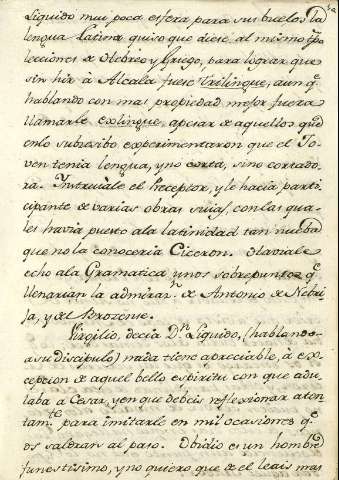 Liquido mui poca esfera para sus buelos la
lengua Latina quiso que diese al mismo tpo
lecciones de Hebreo y Griego, para lograr que
sin hir à Alcala fuese trilingue, aun q.
hablando con mas propiedad mejor fuera
llamarle exlingue, apesar de aquellos que
en lo subcesibo experimentaron que el Jo-
ven tenia lengua, y no corta, sino cortado-
ra. Instruiale el Preceptor, y le hacia parti-
cipante de varias obras suias, con las qua-
les havia puesto a la latinidad tan nueba
que no la conoceria Ciceron. Haviale
echo a la Gramatica unos sobrepuntos q.
llenarian la admiraz.n de Antonio de Nebri-
ja, y de el Brozense.
Virgilio, decia D.n Liquido, (hablando
a su discipulo) nada tiene apreciable, à ex-
cepcion de aquel bello espiritu con que adu-
laba a Cesar, y en que debeis reflexionar aten-
tam.te para imitarle en mil ocasiones q.
os saldran al paso. Obidio es un hombre
funestisimo, y no quiero que de el leais mas